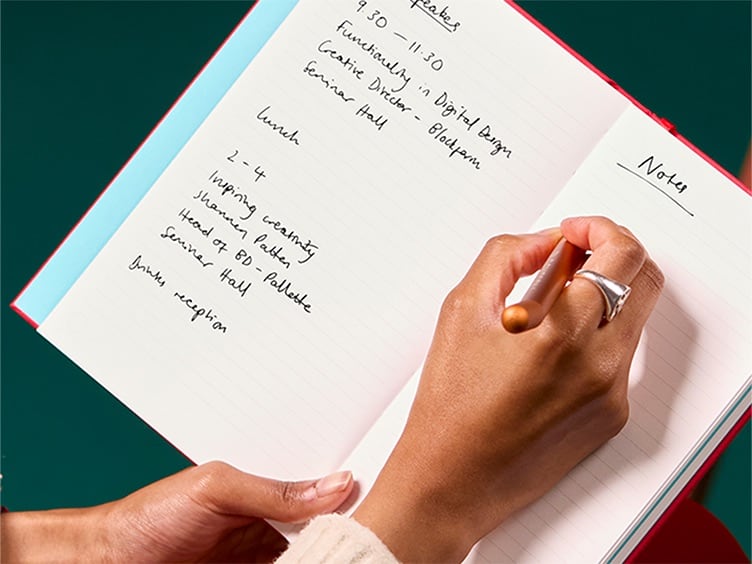 9.30 – 11.30
Functionality in Digital Design
Creative Director - Blockform
Seminar Hall
Lunch
2 - 4
Inspiring creativity
Shannen Patten
Head of BD - Pallette
Seminar Hall
Drinks reception
Notes